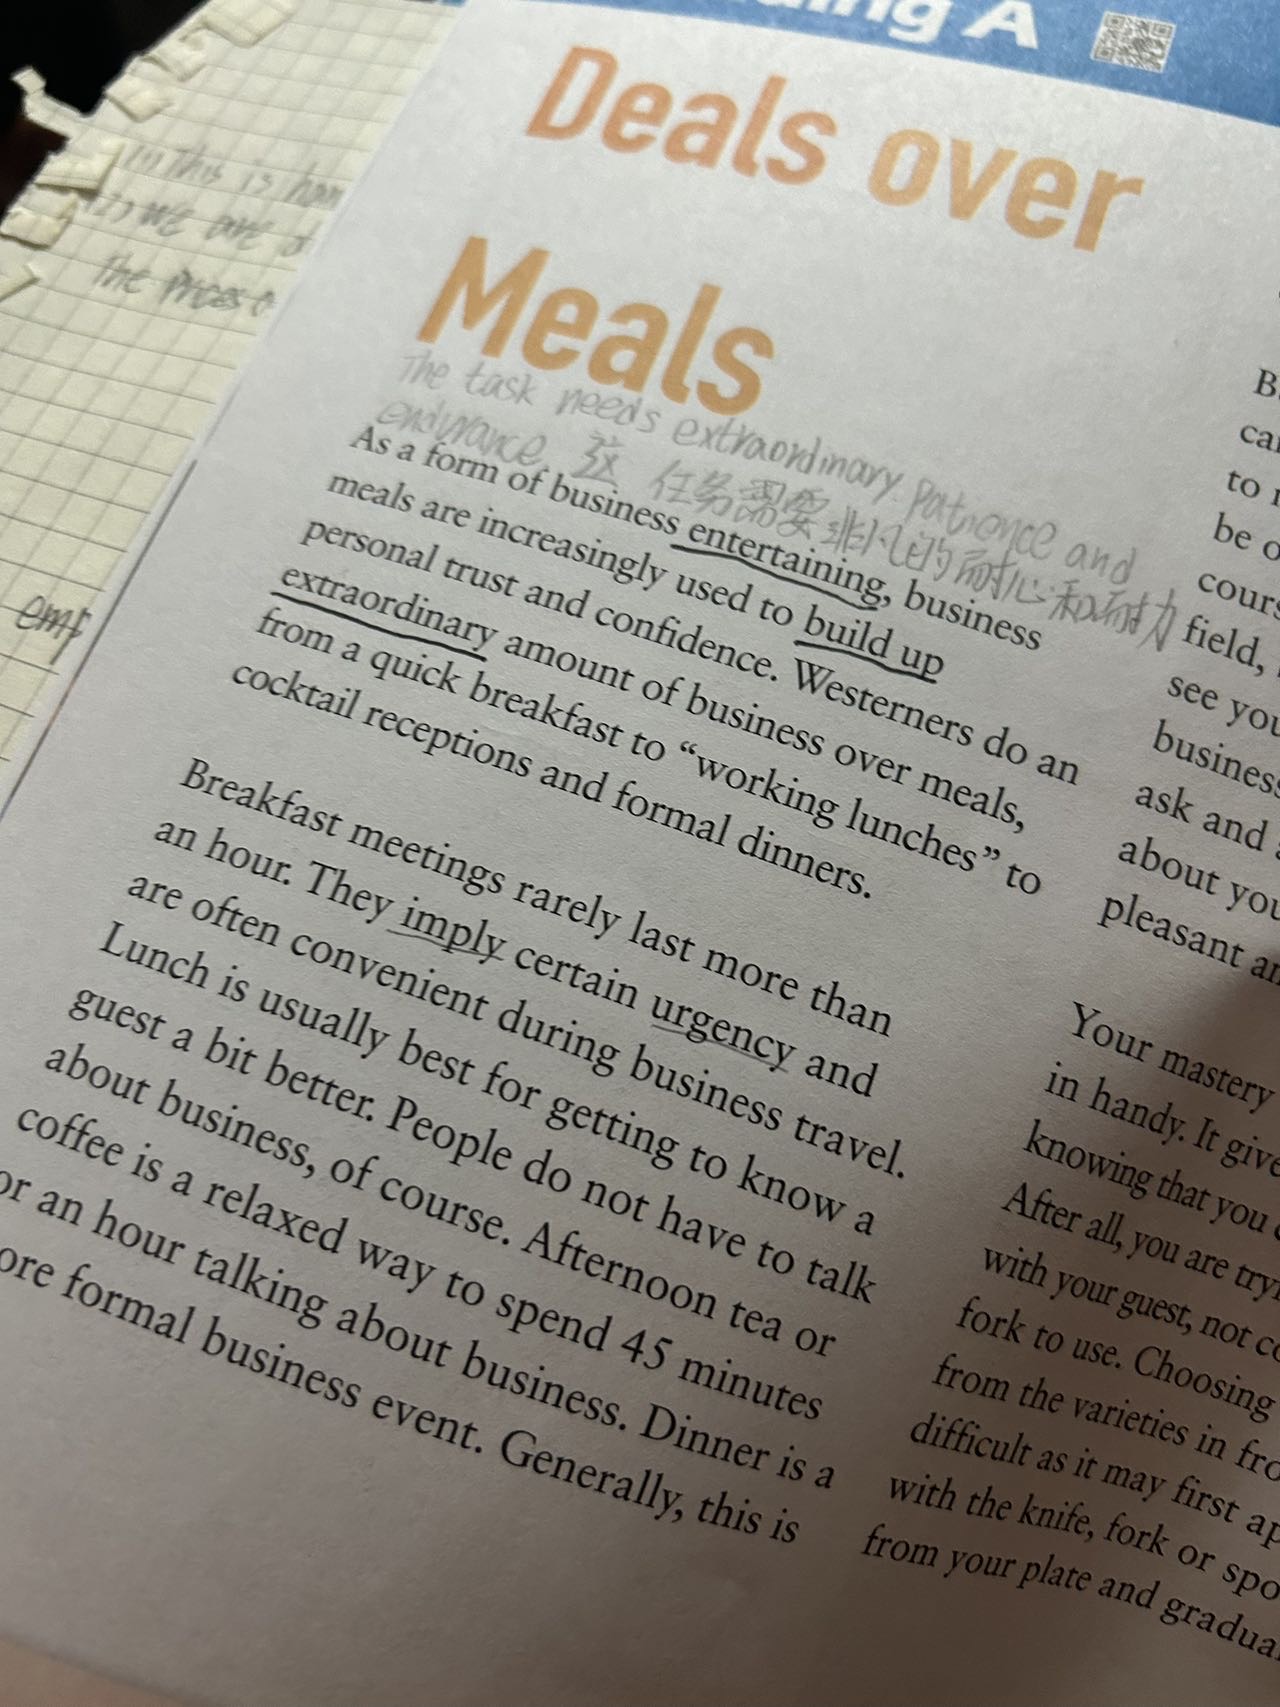 A
Deals over
Meals
The task needs extraordinary patience and
endurance 弦 任务需要非凡的耐心和耐力
As a form of business entertaining, business
meals are increasingly used to build up
personal trust and confidence. Westerners do an
extraordinary amount of business over meals,
from a quick breakfast to “working lunches” to
cocktail receptions and formal dinners.
Breakfast meetings rarely last more than
an hour. They imply certain urgency and
are often convenient during business travel.
Lunch is usually best for getting to know a
guest a bit better. People do not have to talk
about business, of course. Afternoon tea or
coffee is a relaxed way to spend 45 minutes
or an hour talking about business. Dinner is a
ore formal business event. Generally, this is
to
be
field,
see you
business
ask and
about you
pleasant
Your mastery
in handy. It give
knowing that you
After all, you are
with your guest, not
fork to use. Choosing
from the varieties in
difficult as it may first
with the knife, fork or
from your plate and
This is
we are
the